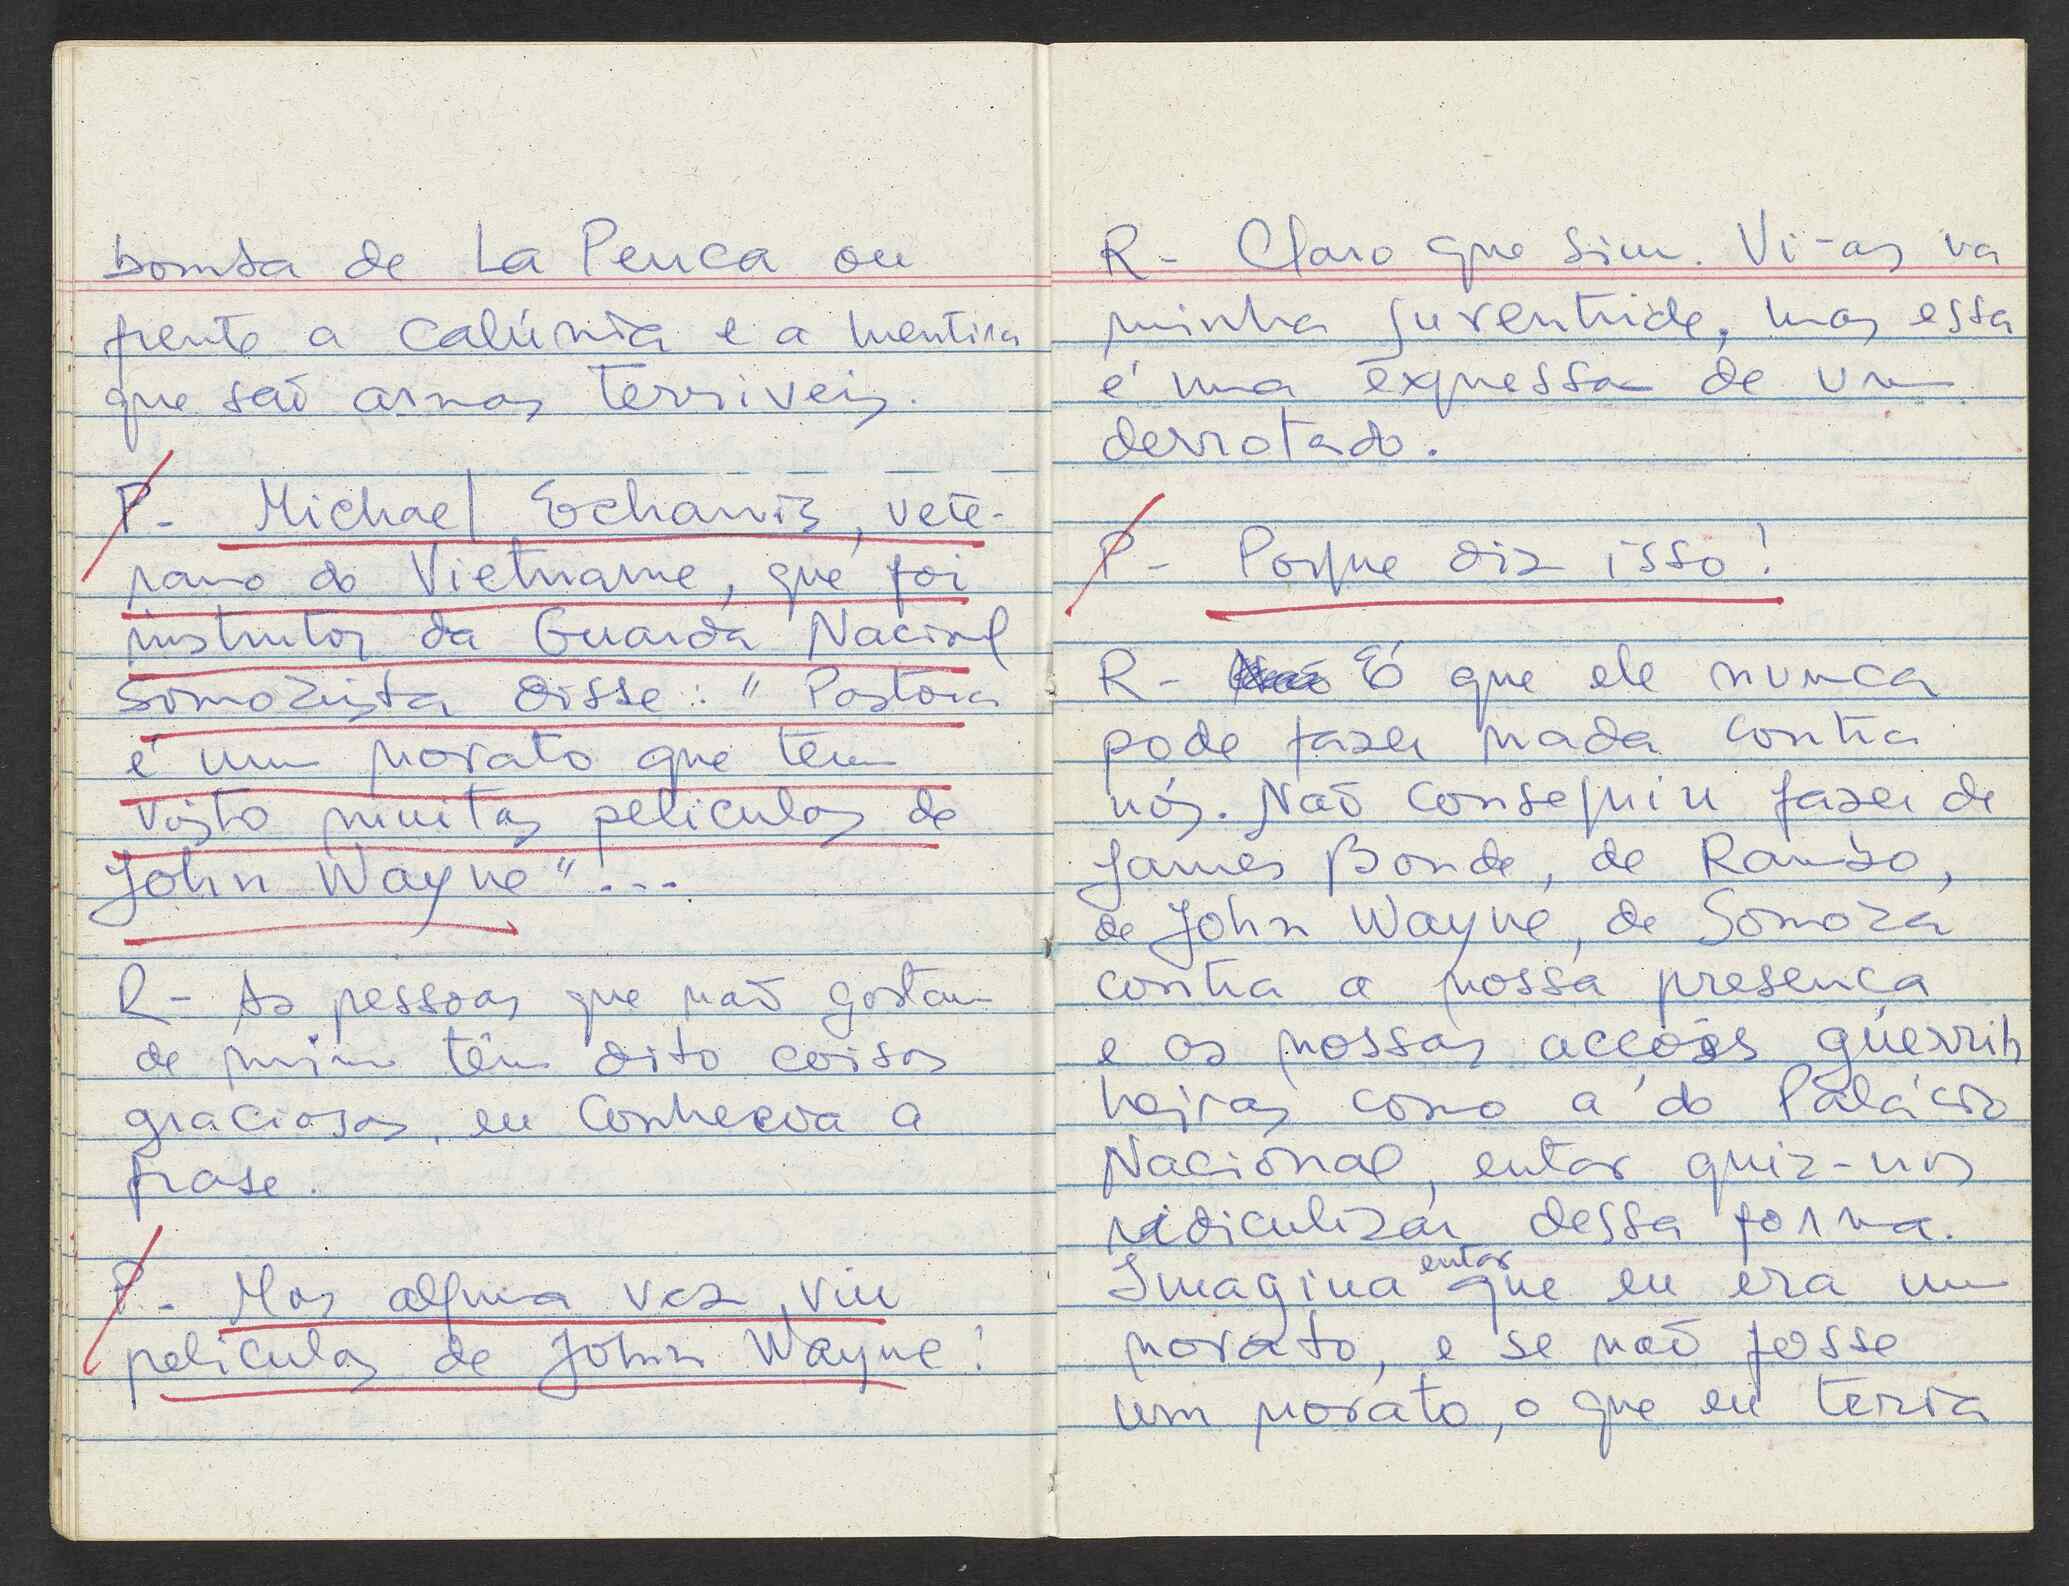 bomba de La Penca ou
frente a calúnia e a mentira
que saõ armas terriveis.
P- Michael Echaniz, vete-
rano do Vietname, que foi
instrutor da Guarda Nacional
Somozista disse: " Pastora
é um novato que tem
visto muitas peliculas de
John Wayne"...
R- As pessoas que naõ gostam
de mim têm dito coisas
graciosas, eu conhecia a
frase.
P- Mas alguma vez viu
peliculas de John Wayne?
R- Claro que sim. Vi-as na
minha juventude, mas essa
é uma expressa de um
derrotado.
P- Porque diz isso?
R- É que ele nunca
pode fazer nada contra
nós. Naõ conseguiu fazer de
James Bonde, de Rambo,
de John Wayne, de Somoza
contra a nossa presença
e as nossas accoẽs guerril
heiras como a do Palácio
Nacional, entaõ quiz-nos
ridiculizar dessa forma.
Imagina entaõ que eu era um
novato, e se naõ fosse
um novato, o que eu teria